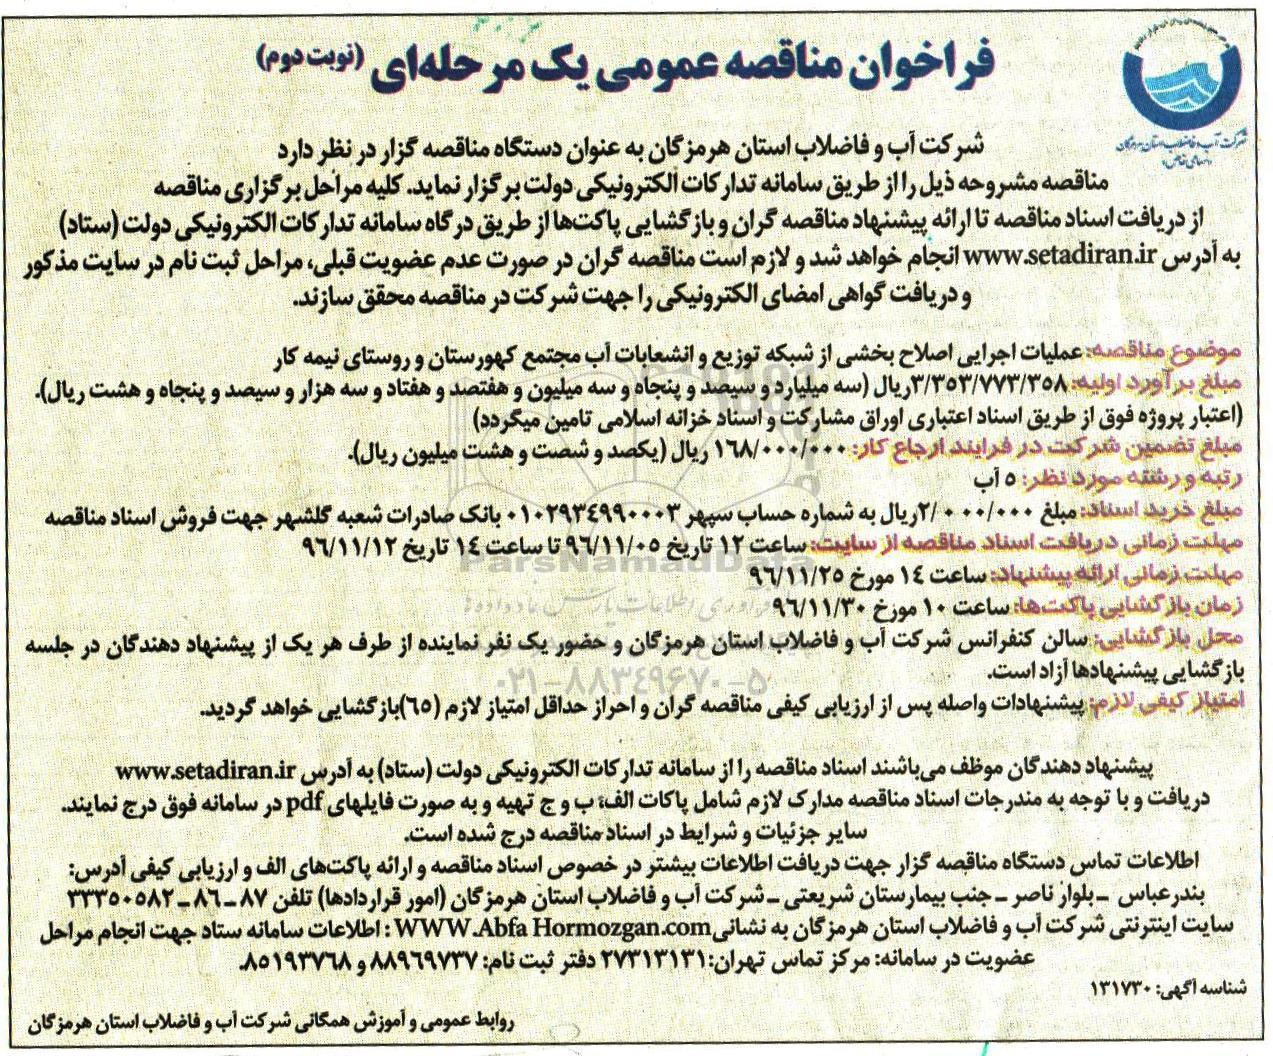 فراخوان مناقصه عمومی یک مرحله‌ای (نوبت دوم)
شرکت آب و فاضلاب استان هرمزگان
(سهامی خاص)
شرکت آب و فاضلاب استان هرمزگان به عنوان دستگاه مناقصه گزار در نظر دارد
مناقصه مشروحه ذیل را از طریق سامانه تدارکات الکترونیکی دولت برگزار نماید. کلیه مراحل برگزاری مناقصه
از دریافت اسناد مناقصه تا ارائه پیشنهاد مناقصه گران و بازگشایی پاکت‌ها از طریق درگاه سامانه تدارکات الکترونیکی دولت (ستاد)
به آدرس www.setadiran.ir انجام خواهد شد و لازم است مناقصه گران در صورت عدم عضویت قبلی، مراحل ثبت نام در سایت مذکور
و دریافت گواهی امضای الکترونیکی را جهت شرکت در مناقصه محقق سازند.
موضوع مناقصه: عملیات اجرایی اصلاح بخشی از شبکه توزیع و انشعابات آب مجتمع کهورستان و روستای نیمه کار
مبلغ برآورد اولیه: ۳/۳۵۳/۷۷۳/۳۵۸ریال (سه میلیارد و سیصد و پنجاه و سه میلیون و هفتصد و هفتاد و سه هزار و سیصد و پنجاه و هشت ریال).
(اعتبار پروژه فوق از طریق اسناد اعتباری اوراق مشارکت و اسناد خزانه اسلامی تامین میگردد)
مبلغ تضمین شرکت در فرایند ارجاع کار: ۱۶۸/۰۰۰/۰۰۰ ریال (یکصد و شصت و هشت میلیون ریال).
رتبه و رشته مورد نظر: ۵ آب
مبلغ خرید اسناد: مبلغ ۲/۰۰۰/۰۰۰ریال به شماره حساب سپهر ۰۱۰۲۹۳۴۹۹۰۰۰۳ بانک صادرات شعبه گلشهر جهت فروش اسناد مناقصه
مهلت زمانی دریافت اسناد مناقصه از سایت: ساعت ۱۲ تاریخ ۹۶/۱۱/۰۵ تا ساعت ۱۴ تاریخ ۹۶/۱۱/۱۲
مهلت زمانی ارائه پیشنهاد: ساعت ۱۴ مورخ ۹۶/۱۱/۲۵
زمان بازگشایی پاکت‌ها: ساعت ۱۰ مورخ ۹۶/۱۱/۳۰
محل بازگشایی: سالن کنفرانس شرکت آب و فاضلاب استان هرمزگان و حضور یک نفر نماینده از طرف هر یک از پیشنهاد دهندگان در جلسه
بازگشایی پیشنهادها آزاد است.
امتیاز کیفی لازم: پیشنهادات واصله پس از ارزیابی کیفی مناقصه گران و احراز حداقل امتیاز لازم (۶۵)بازگشایی خواهد گردید.
ParsNamadData
۰۲۱-۸۸۳۴۹۶۷۰-۵
پیشنهاد دهندگان موظف می‌باشند اسناد مناقصه را از سامانه تدارکات الکترونیکی دولت (ستاد) به آدرس www.setadiran.ir
دریافت و با توجه به مندرجات اسناد مناقصه مدارک لازم شامل پاکات الف، ب و ج تهیه و به صورت فایلهای pdf در سامانه فوق درج نمایند.
سایر جزئیات و شرایط در اسناد مناقصه درج شده است.
اطلاعات تماس دستگاه مناقصه گزار جهت دریافت اطلاعات بیشتر در خصوص اسناد مناقصه و ارائه پاکت‌های الف و ارزیابی کیفی آدرس:
بندرعباس ـ بلوار ناصر ـ جنب بیمارستان شریعتی ـ شرکت آب و فاضلاب استان هرمزگان (امور قراردادها) تلفن ۸۷ ـ ۸۶ ـ ۳۳۳۵۰۵۸۲
سایت اینترنتی شرکت آب و فاضلاب استان هرمزگان به نشانی WWW.Abfa Hormozgan.com : اطلاعات سامانه ستاد جهت انجام مراحل
عضویت در سامانه: مرکز تماس تهران: ۲۷۳۱۳۱۳۱ دفتر ثبت نام: ۸۸۹۶۹۷۳۷ و ۸۵۱۹۳۷۶۸.
شناسه آگهی: ۱۳۱۷۳۰
روابط عمومی و آموزش همگانی شرکت آب و فاضلاب استان هرمزگان